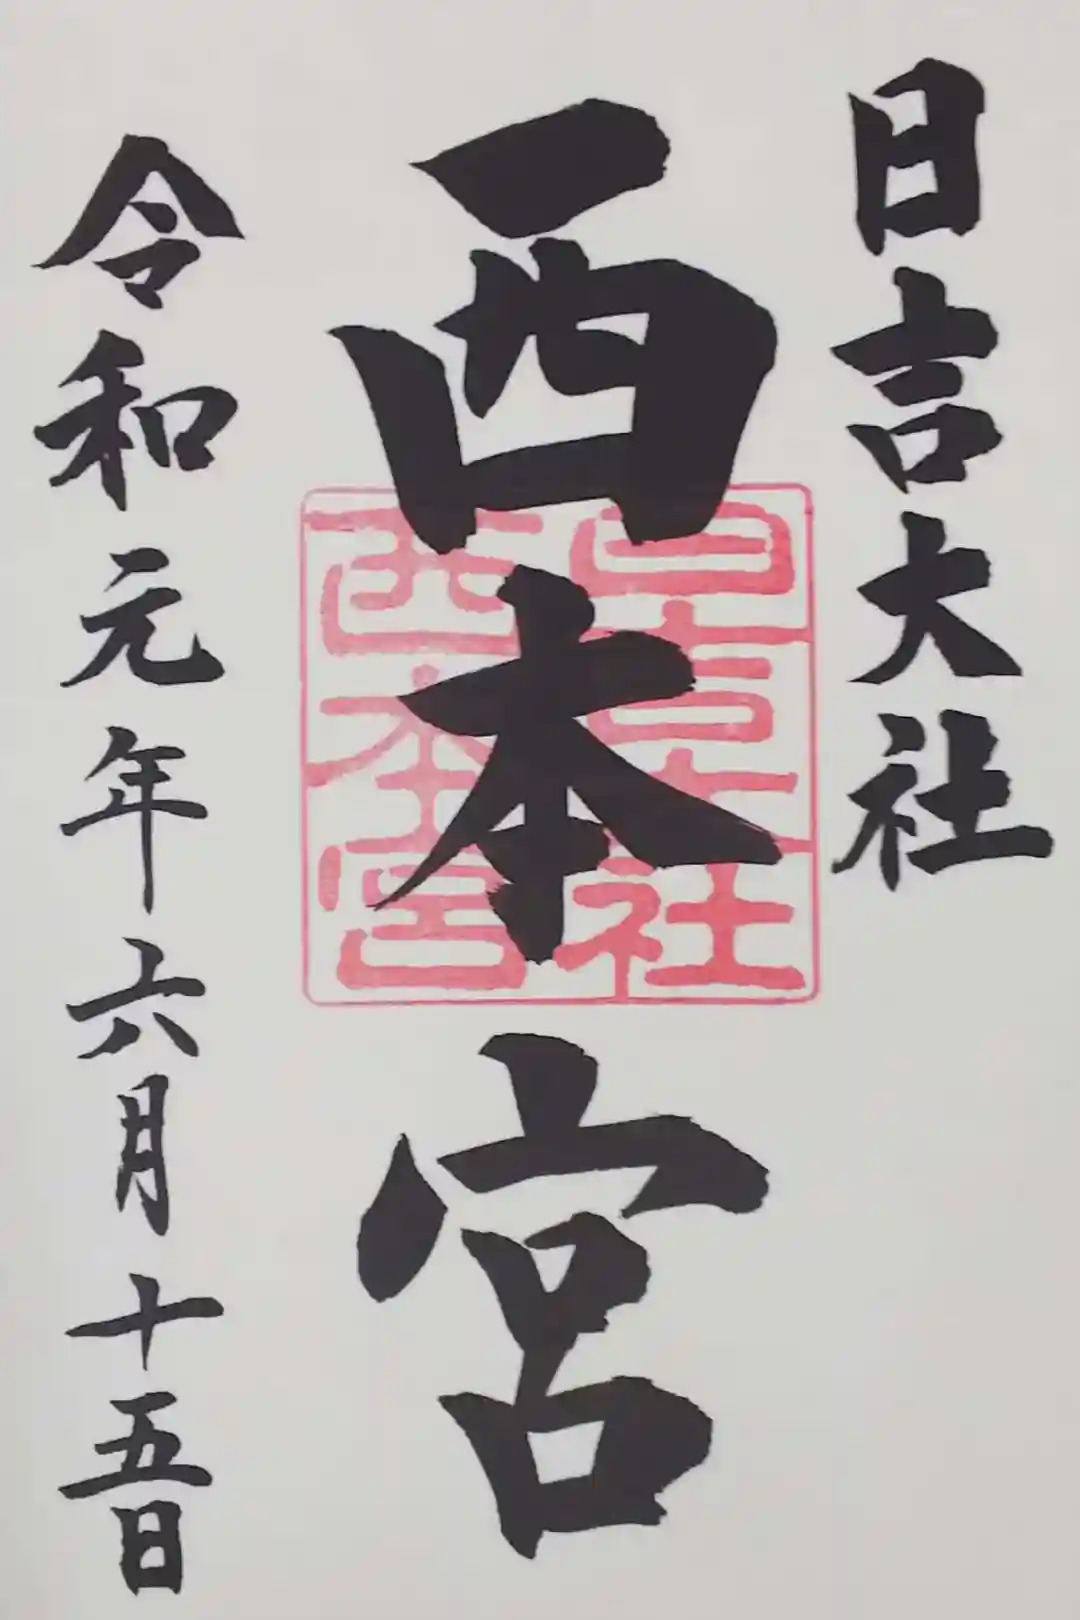 日吉大社
西本宮
日吉大社
西本宮
令和元年六月十五日